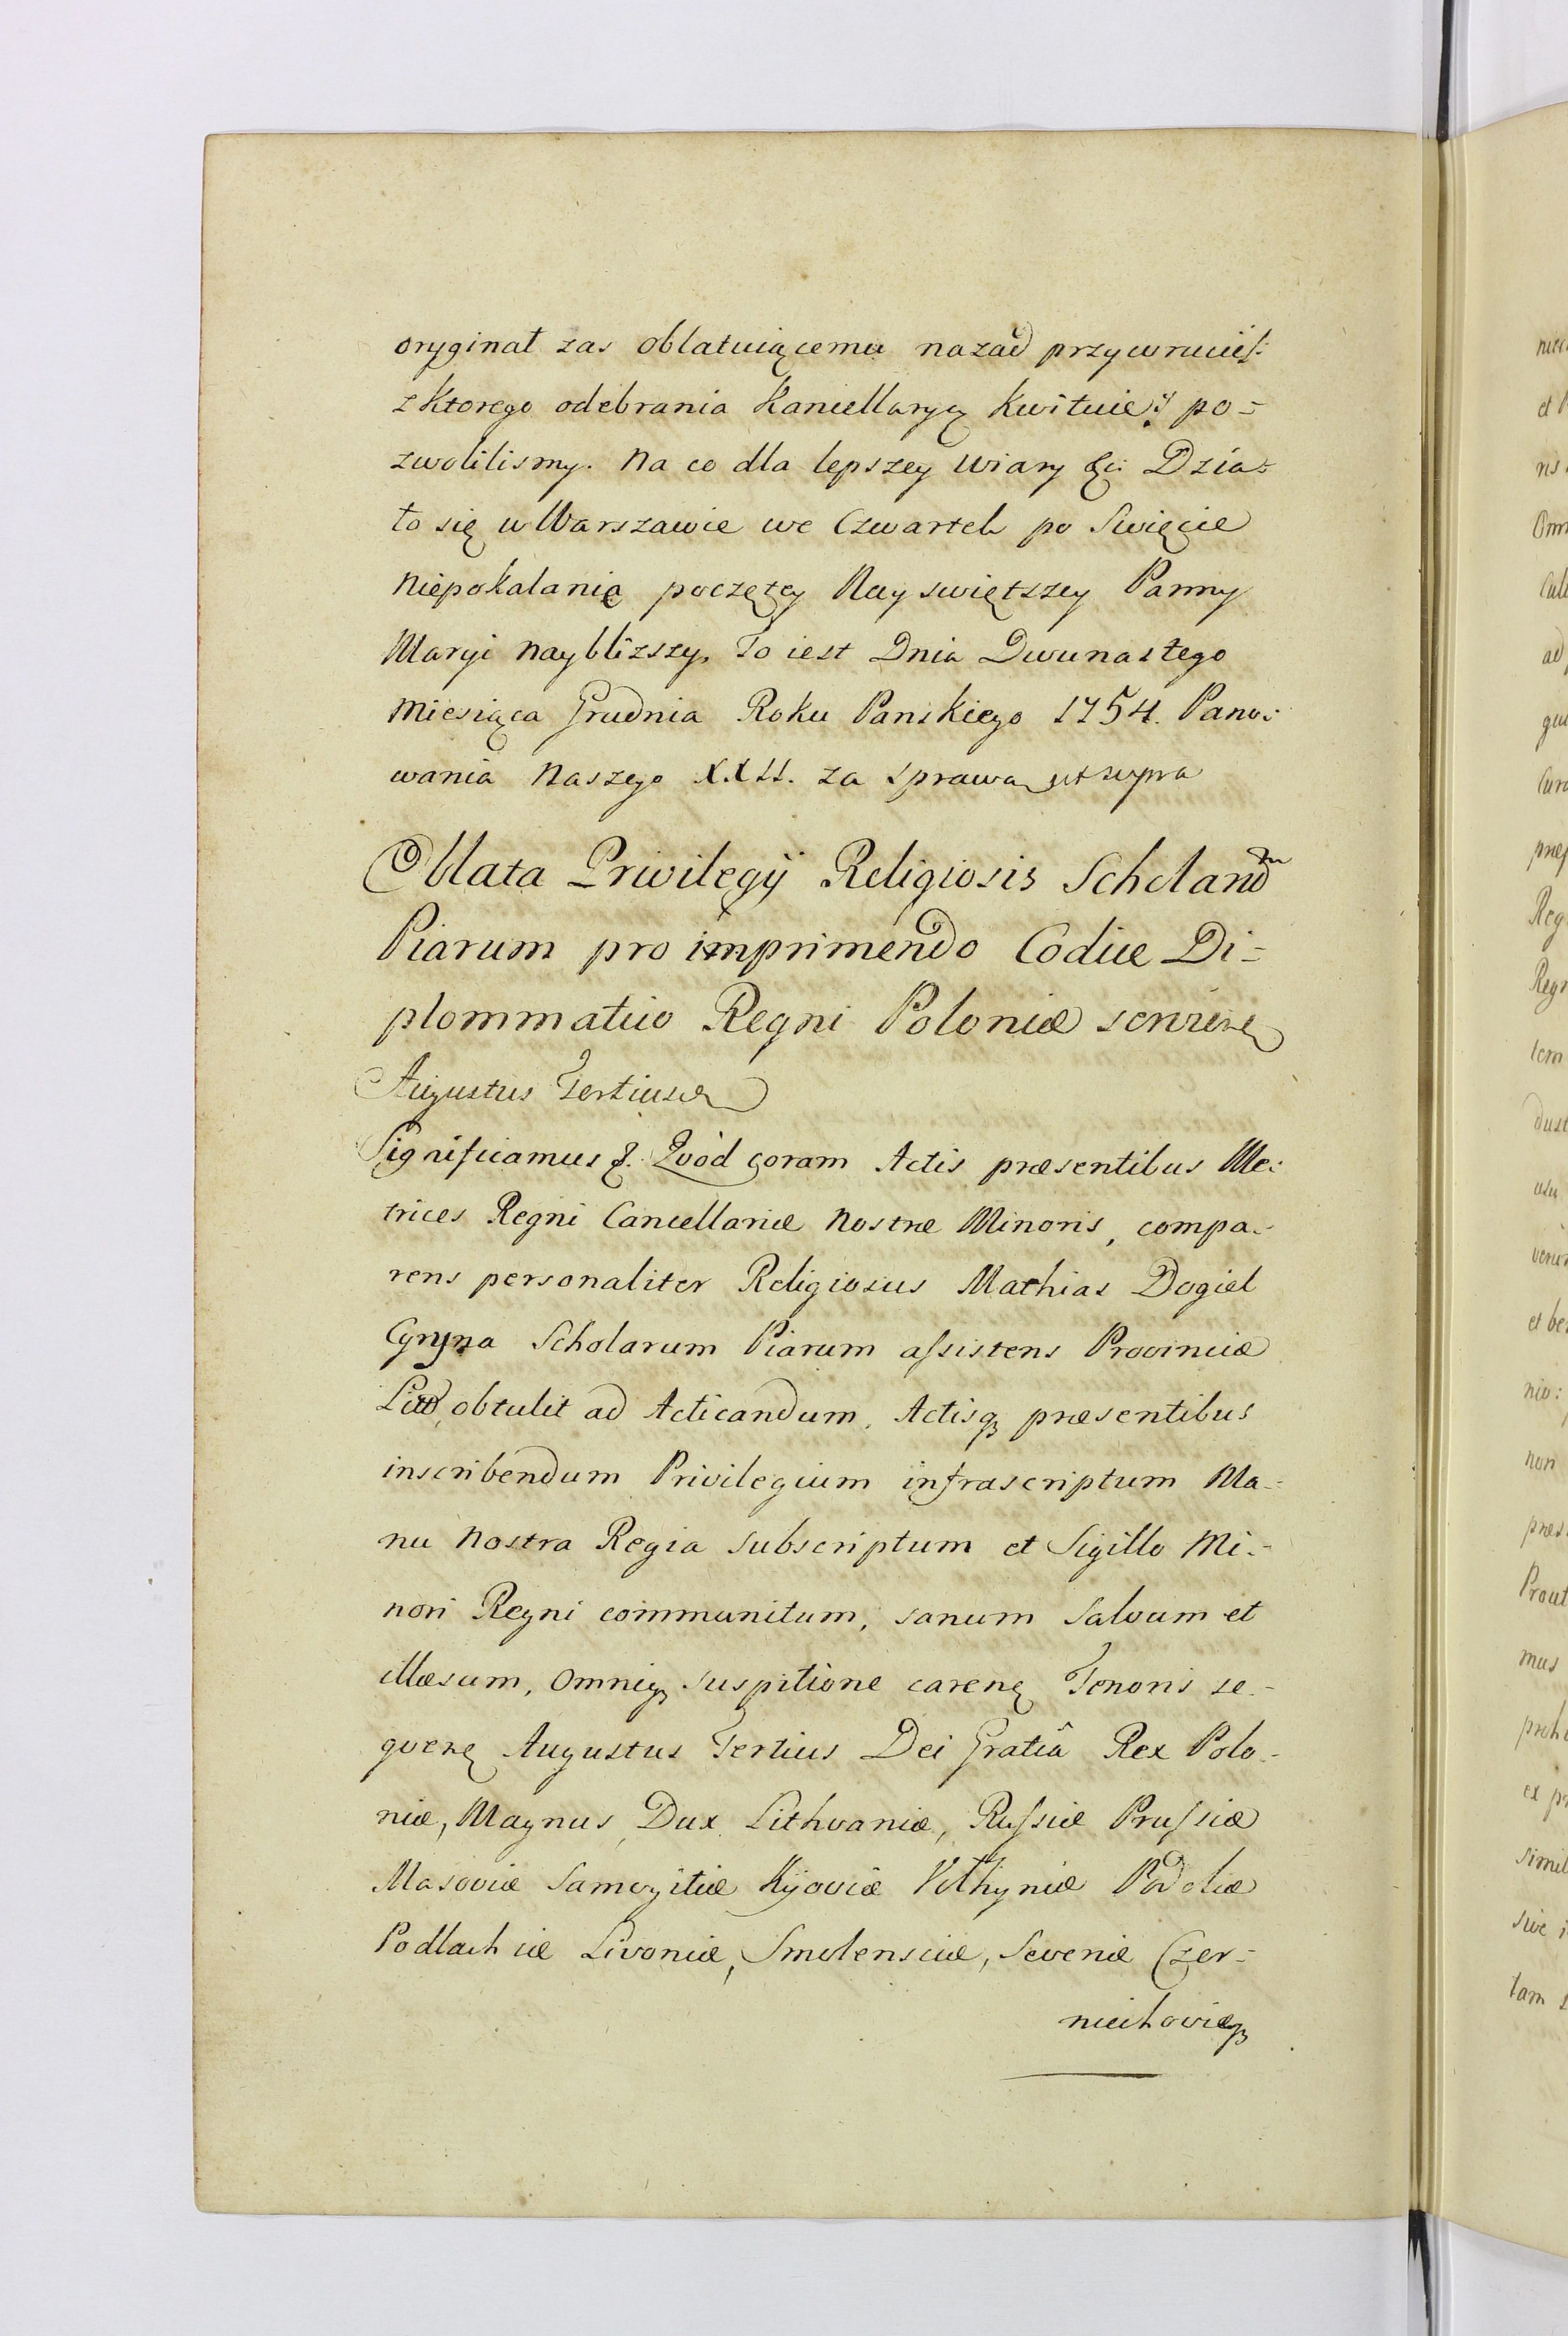 oryginał zas oblatuiącemu nazad przywrucił:
z ktorego odebrania Kancellaryą Kwituie, y po=
zwolilismy. Na co dla lepszey Wiary &c: Dzia=
ło się w Warszawie we Czwartek po Swięcie
Niepokalanie poczętey Nayswiętszey Panny
Maryi nayblizszy, To iest Dnia Dwunastego
Miesiąca Grudnia Roku Panskiego 1754. Pano=
wania Naszego XXII. za sprawą ut supra
Oblata Privilegij Religiosis Scholarum
Piarum pro imprimendo Codice Di=
plommatico Regni Poloniæ
Augustus Tertius
Significamus &. Quod coram Actis præsentibus Me=
trices Regni Cancellariæ Nostræ Minoris, compa=
rens personaliter Religiosus Mathias Dogiel
Scholarum Piarum assistens Provinciæ
obtulit ad Acticandum, Actisq præsentibus
inscribendum Privilegium infrascriptum Ma=
nu Nostra Regia subscriptum et Sigillo Mi=
nori Regni communitum, sanum Salvum et
illæsum, Omniq suspitione carenę Tenoris se=
quenę Augustus Tertius Dei Gratiâ Rex Polo=
niæ, Magnus Dux Lithvaniæ, Russiæ Prussiæ
Masoviæ Samogitiæ Kijoviæ Volhyniæ Podoliæ
Podlachiæ Livoniæ, Smolensciæ, Seveniæ Czer=
niechoviæq